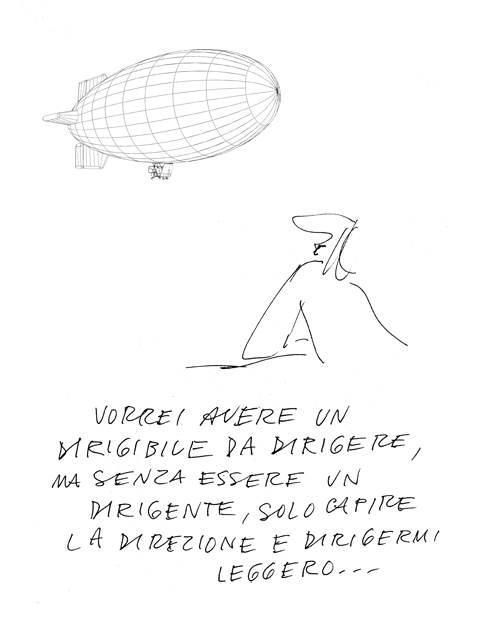 VORREI AVERE UN
DIRIGIBILE DA DIRIGERE,
MA SENZA ESSERE UN
DIRIGENTE, SOLO CAPIRE
LA DIREZIONE E DIRIGERMI
LEGGERO...